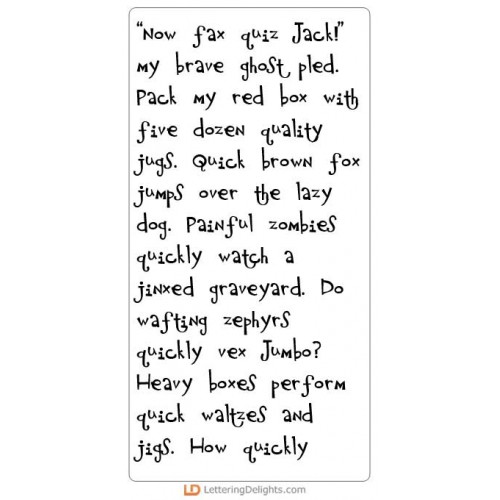 "Now fax quiz Jack!"
my brave ghost pled.
Pack my red box with
five dozen quality
jugs. Quick brown fox
jumps over the lazy
dog. Painful zombies
quickly watch a
jinxed graveyard. Do
wafting zephyrs
quickly vex Jumbo?
Heavy boxes perform
quick waltzes and
jigs. How quickly
LD LetteringDelights.com